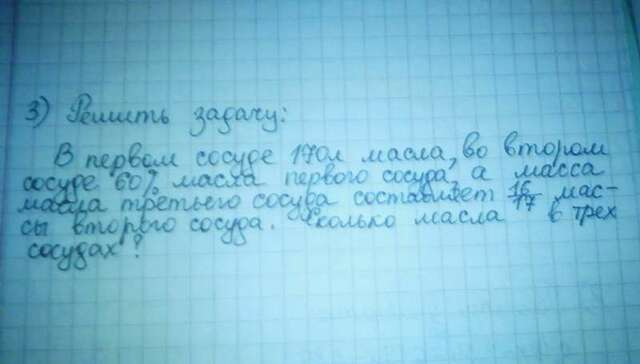 3) Решить задачу:
В первом сосуде 170л масла, во втором
сосуде 60% масла первого сосуда, а масса
масла третьего сосуда составляет 16/17 мас-
сы второго сосуда. Сколько масла в трех
сосудах?